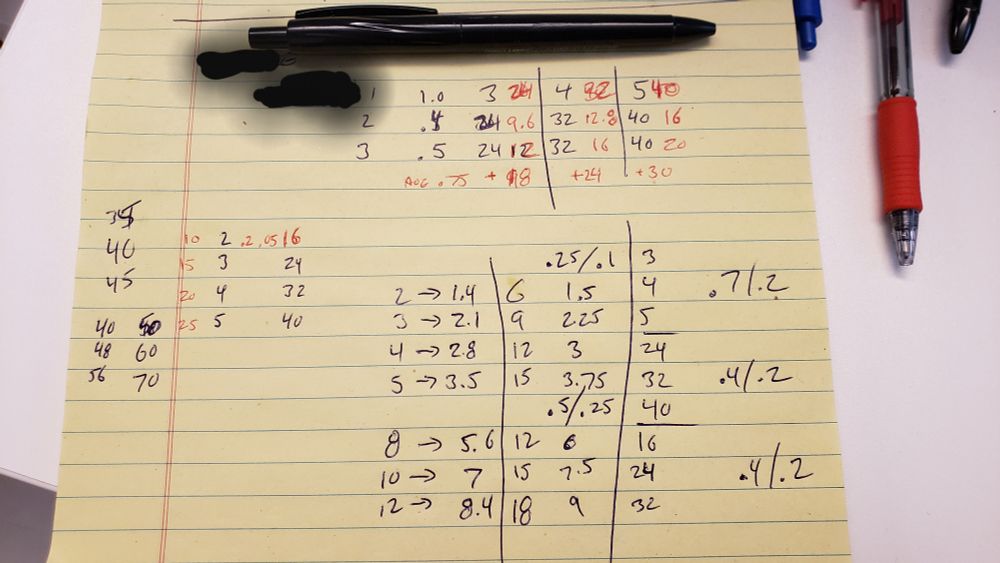 1 1.0 3 24 4 32 5 40
2 .4 24 9.6 32 12.8 40 16
3 .5 24 12 32 16 40 20
AVG .75 +18 +24 +30
40
45
10 2 .2 .05 16
15 3 24
20 4 32
25 5 40
40 50
48 60
56 70
.25/.1 3
2 → 1.4 6 1.5 4 .7/.2
3 → 2.1 9 2.25 5
4 → 2.8 12 3 24
5 → 3.5 15 3.75 32 .4/.2
.5/.25 40
8 → 5.6 12 6 16
10 → 7 15 7.5 24 .4/.2
12 → 8.4 18 9 32